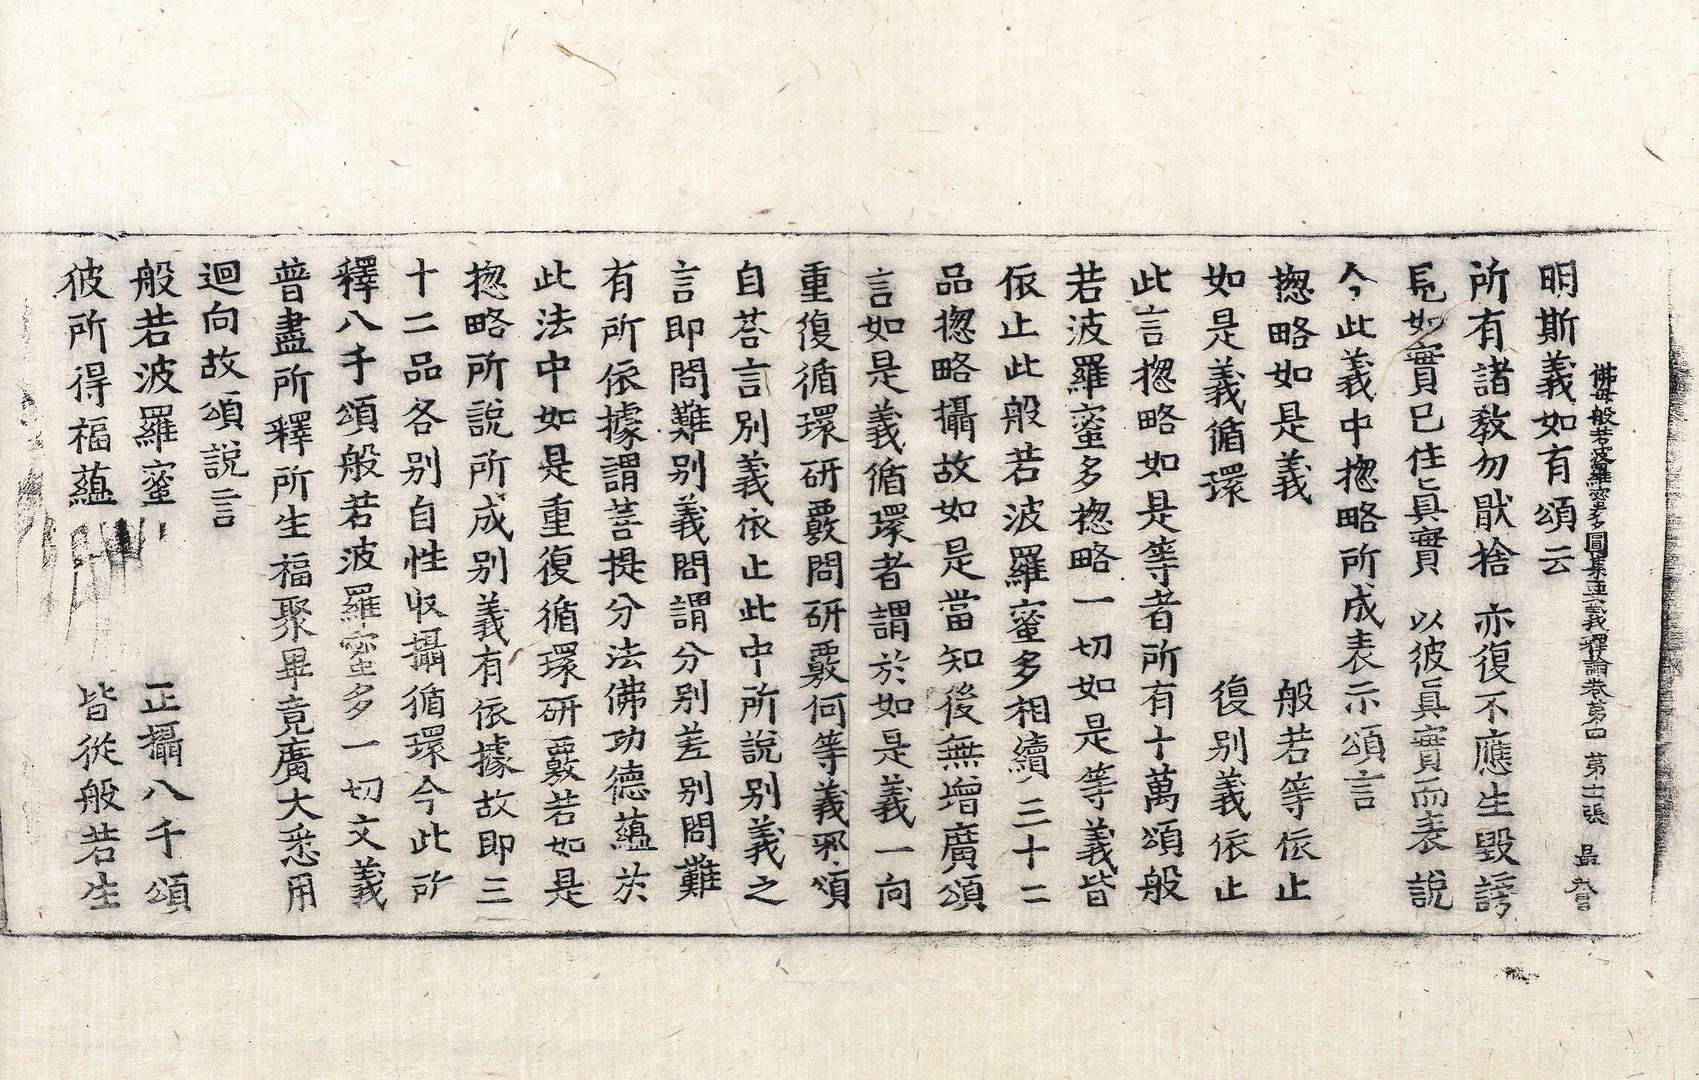 佛母般若波羅蜜多圓集要義釋論卷第四 第十一張
明斯義如有頌云
所有諸教勿猒捨 亦復不應生毀謗
見如實已住眞實 以彼眞實而表說
今此義中揔略所成表示頌言
揔略如是義 般若等依止
如是義循環 復別義依止
此言揔略如是等者所有十萬頌般
若波羅蜜多揔略一切如是等義皆
依止此般若波羅蜜多相續三十二
品揔略攝故如是當知後無增廣頌
言如是義循環者謂於如是義一向
重復循環研覈問研覈何等義邪頌
自荅言別義依止此中所說別義之
言即問難別義問謂分別差別問難
有所依據謂菩提分法佛功德蘊於
此法中如是重復循環研覈若如是
揔略所說所成別義有依據故即三
十二品各別自性収攝循環今此所
釋八千頌般若波羅蜜多一切文義
普盡所釋所生福聚畢竟廣大悉用
迴向故頌說言
般若波羅蜜 正攝八千頌
彼所得福蘊 皆從般若生